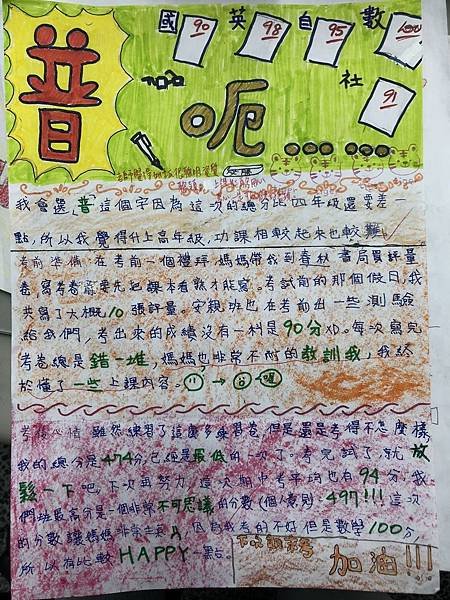 國 英 自 數
90 98 95 100
社
91
普
呃
我會選「普」這個字因為這次的總分比四年級還要差一
點,所以我覺得升上高年級,功課相較起來也較難。
考前準備:在考前一個禮拜,媽媽帶我到春林書局買評量
卷,寫考卷前要先把課本看熟才能寫。考試前的那個假日,我
共寫了大概10張評量。安親班也在考前出一些測驗
給我們,考出來的成績沒有一科是90分XD。每次寫完
考卷總是錯一堆,媽媽也非常不耐的教訓我,我終
於懂了一些上課內容。
考後心情 雖然練習了這麼多練習卷,但是還是考得不怎麼樣,
我的總分是474分,已經是最低的一次了。考完試了,就放
鬆一下吧,下次再努力,這次期中考平均也有94分,我
們班最高分是一個非常不可思議的分數(個人意見)497!!!這次
的分數讓媽媽非常生氣,但因為我考的不好但是數學100分,
所以有比較HAPPY一點。
下次期末考
加油!!!